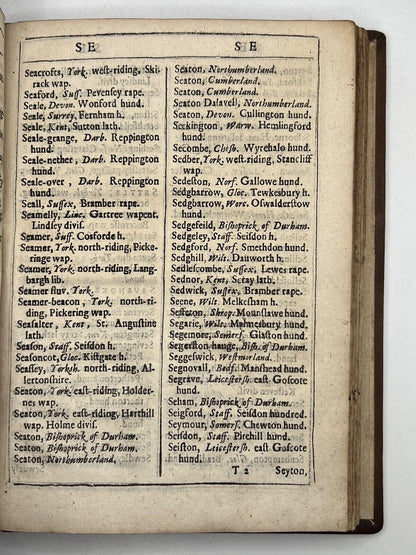 SE
Seacrofts, York. west-riding, Ski-
rack wap.
Seaford, Suff. Pevensey rape.
Seale, Devon. Wonford hund.
Seale, Surrey, Fernham h.
Seale, Kent, Sutton lath.
Seale-grange, Darb. Reppington
hund.
Seale-nether, Darb. Reppington
hund.
Seale-over, Darb. Reppington
hund.
Seall, Sussex, Bramber rape.
Seamelly, Linc. Gartree wapent.
Lindsey divis.
Seamer, Suff. Cosforde h.
Seamer, York north-riding, Picke-
ringe wap.
Seamer, York, north-riding, Lang-
bargh lib.
Seamer fluv. York.
Seamer-beacon, York, north-ri-
ding, Pickering wap.
Seasalter, Kent, St. Augustine
lath.
Season, Staff. Seisdon h.
Seasoncot, Gloc. Kiftgate h.
Seassey, Yorksh. north-riding, Al-
lertonshire.
Seaton, York. east-riding, Holder-
nes wap.
Seaton, York. east-riding, Harthill
wap. Holme divis.
Seaton, Bishoprick of Durham.
Seaton, Bishoprick of Durham.
Seaton, Northumberland.
SE
Seaton, Northumberland.
Seaton, Cumberland.
Seaton, Cumberland.
Seaton Dalavell, Northumberland.
Seaton, Devon. Cullington hund.
Seckington, Warw. Hemlingford
hund.
Secombe, Chish. Wyrehalo hund.
Sedber, York, west-riding, Stancliff
wap.
Sedeston, Norf. Gallowe hund.
Sedgbarrow, Gloc. Tewkesbury h.
Sedgbarrow, Worc. Oswalderstow
hund.
Sedgefeild, Bishoprick of Durham.
Sedgeley, Staff. Seisdon h.
Sedgford, Norf. Smethdon hund.
Sedghill, Wils. Dauworth h.
Sedlescombe, Sussex, Lewes rape.
Sednor, Kent, Scray lath.
Sedwick, Sussex, Bramber rape.
Seene, Wils. Melkesham h.
Shrop. Mounslawe hund.
Segarie, Wils. Malmesbury hund.
Segemore, Somers. Glaston hund.
Segerston-hauge, Bish. of Durham.
Seggeswick, Westmorland.
Segnovall, Bedf. Manshead hund.
Segrave, Leicestersh. east Goscote
hund.
Seham, Bishoprick of Durham.
Seigford, Staff. Seisdon hundred.
Seymour, Somers. Chewton hund.
Seisdon, Staff. Pirehill hund.
Seiston, Leicestersh. east Goscote
hund.
T 2 Seyton,